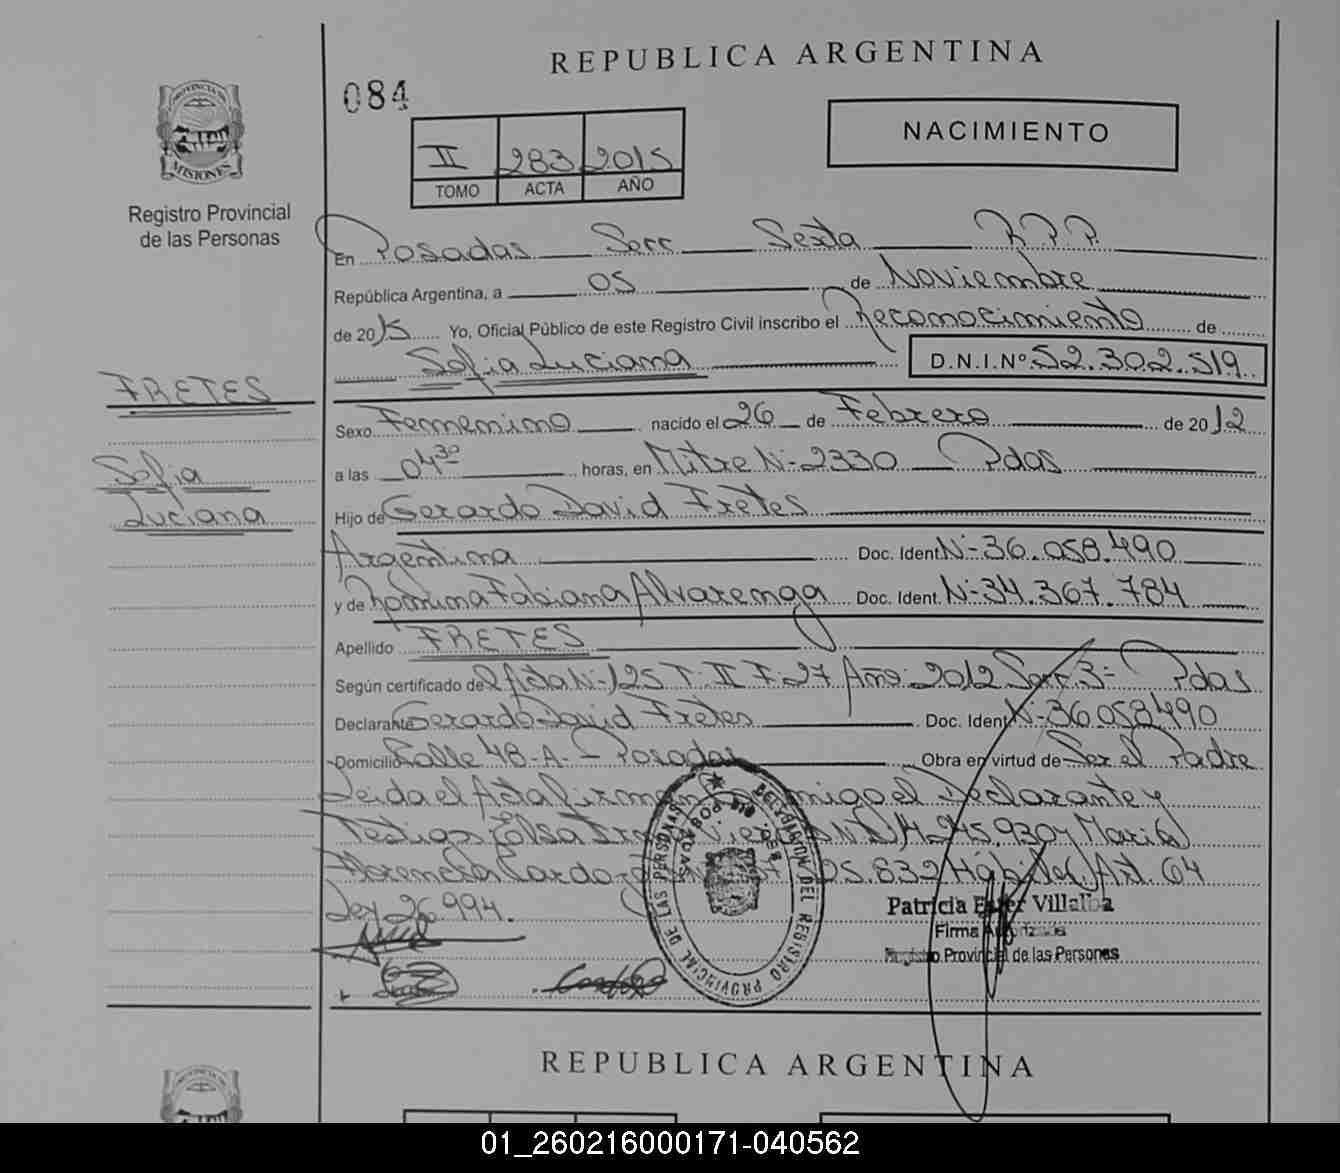 REPUBLICA ARGENTINA
084
NACIMIENTO
II 283 2015
TOMO ACTA AÑO
PROVINCIA DE
MISIONES
Registro Provincial
de las Personas
En Posadas Secc Sexta R.P.P.
República Argentina, a 05 de Noviembre
de 2015 Yo, Oficial Público de este Registro Civil inscribo el Reconocimiento de
Sofia Luciana D.N.I.Nº 52.302.519
FRETES
Sexo Femenino nacido el 26 de Febrero de 2012
Sofia
a las 04 30 horas, en Mitre Nº 2330 Pdas
Luciana
Hijo de Gerardo David Fretes
Argentina Doc. Ident. Nº 36.058.490
y de Romina Fabiana Alvarenga Doc. Ident. Nº 34.367.784
Apellido FRETES
Según certificado de Acta Nº 125 T. II F. 27 Año 2012 Secc 3º Pdas
Declarante Gerardo David Fretes Doc. Ident Nº 36.058490
Domicilio Calle 48-A- Posadas Obra en virtud de Ser el Padre
Leida el Acta firman migo el Declarante y
Testigos Elsa 14.245.930 y Maria
Florencia Cardozo 05.832 Hábiles Art. 64
Ley 26.994.
Patricia Ester Villalba
Firma Autorizada
Registro Provincial de las Personas
DELEGACION DEL REGISTRO PROVINCIAL DE LAS PERSONAS
POSADAS
REPUBLICA ARGENTINA
01_260216000171-040562